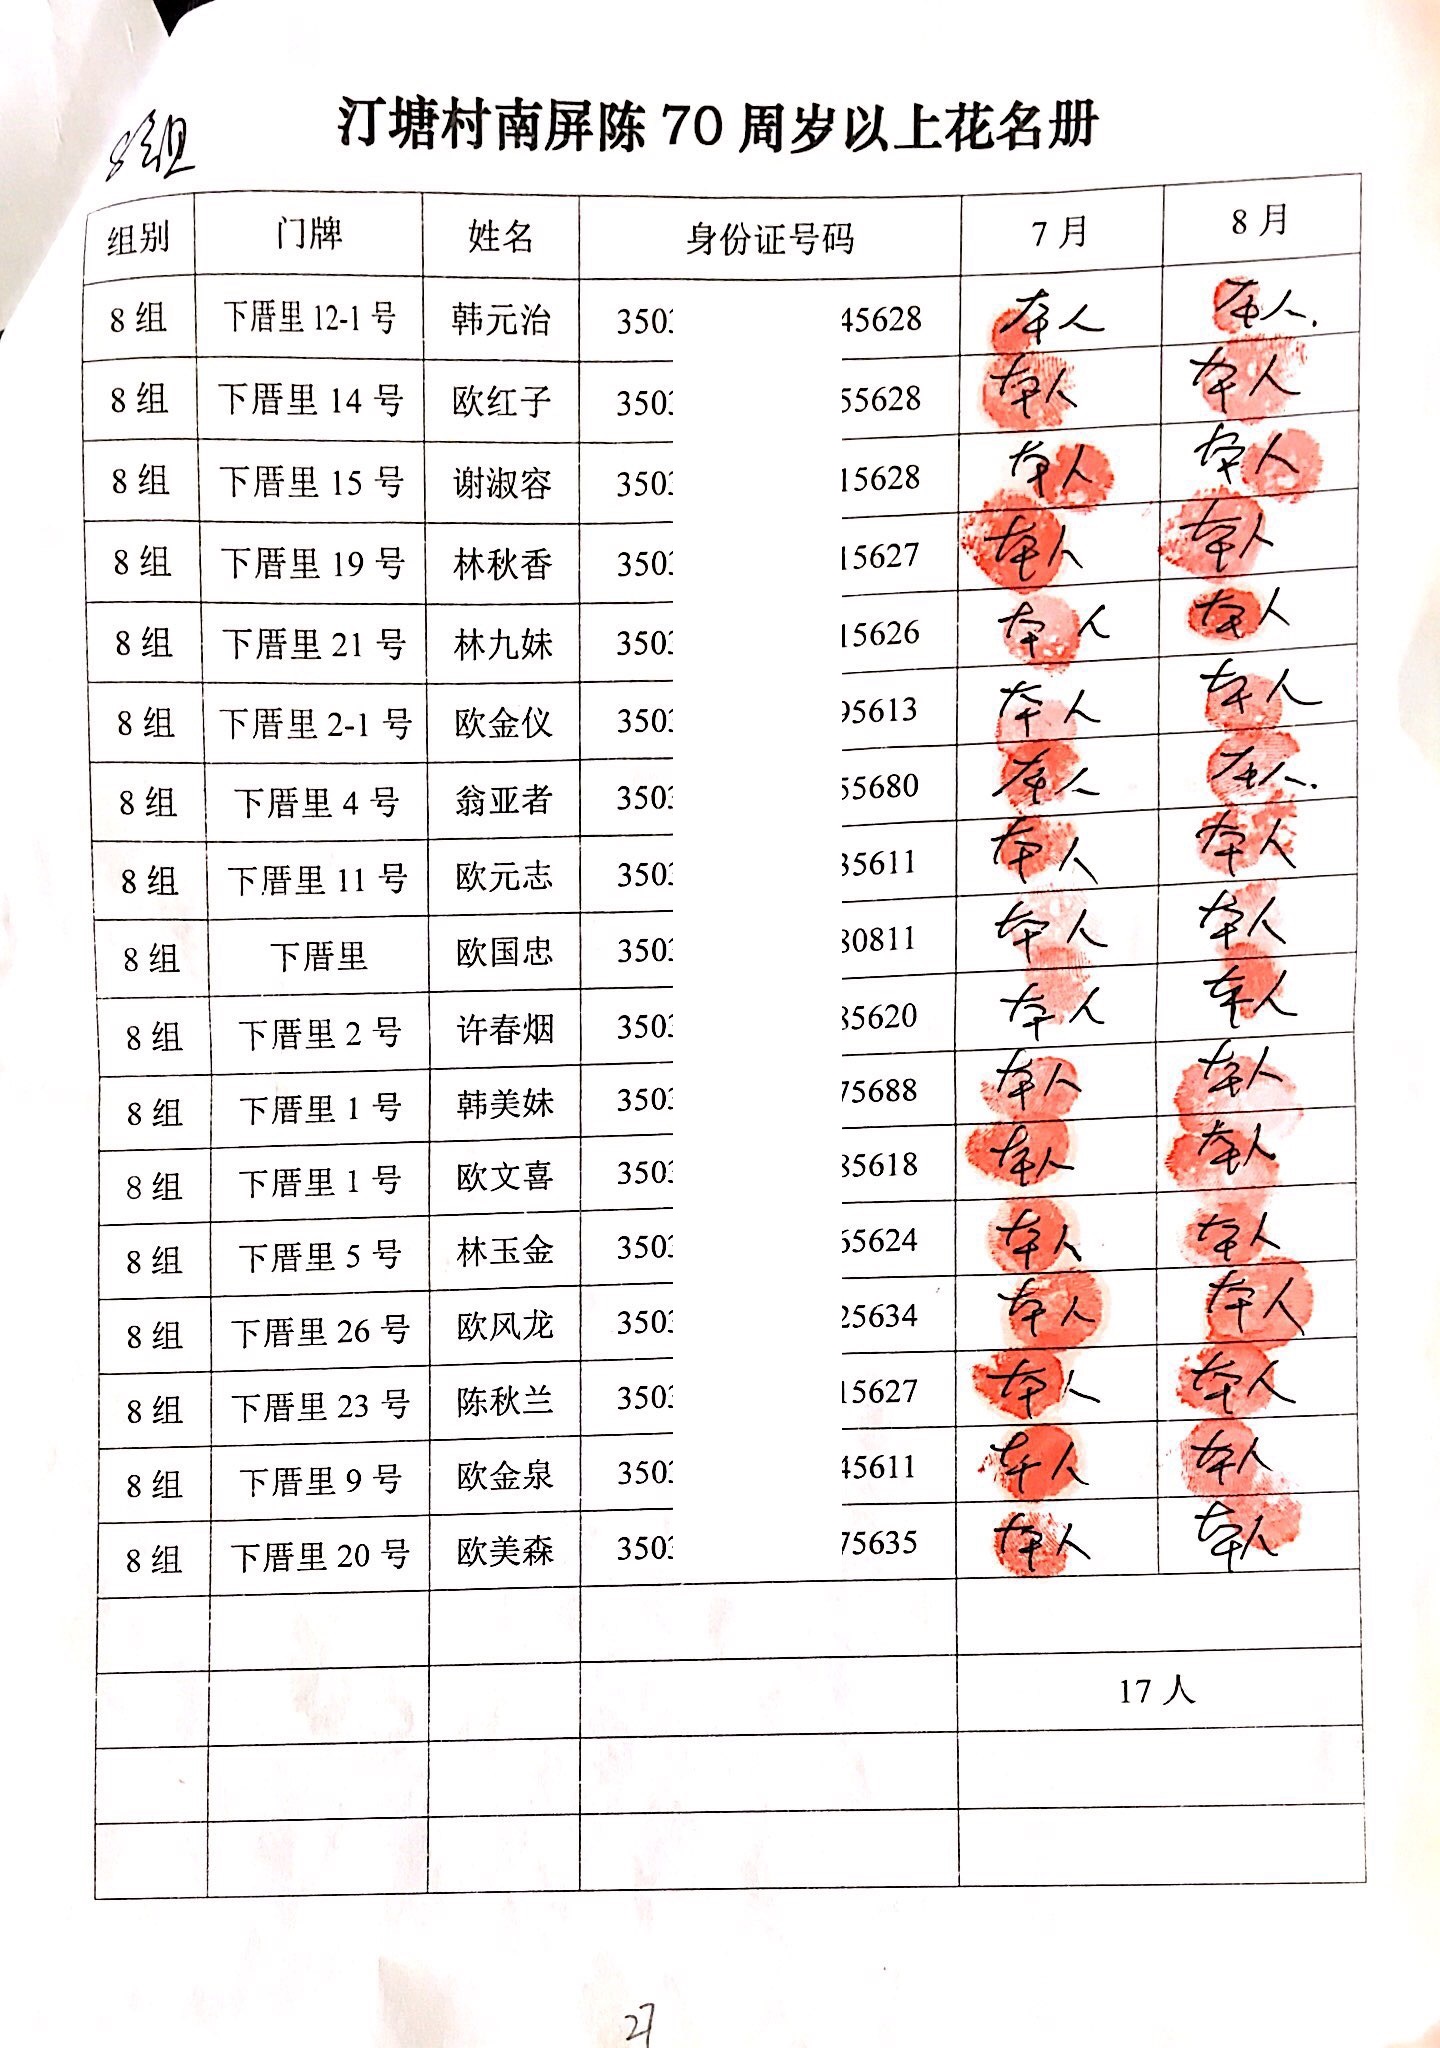 8组
汀塘村南屏陈 70 周岁以上花名册
组别 门牌 姓名 身份证号码 7 月 8 月
8 组 下厝里 12-1 号 韩元治 3503 45628 本人 本人.
8 组 下厝里 14 号 欧红子 3503 55628 本人 本人
8 组 下厝里 15 号 谢淑容 3503 15628 本人 本人
8 组 下厝里 19 号 林秋香 3503 15627 本人 本人
8 组 下厝里 21 号 林九妹 3503 15626 本人 本人
8 组 下厝里 2-1 号 欧金仪 3503 95613 本人 本人
8 组 下厝里 4 号 翁亚者 3503 55680 本人 本人.
8 组 下厝里 11 号 欧元志 3503 35611 本人 本人
8 组 下厝里 欧国忠 3503 30811 本人 本人
8 组 下厝里 2 号 许春烟 3503 35620 本人 本人
8 组 下厝里 1 号 韩美妹 3503 75688 本人 本人
8 组 下厝里 1 号 欧文喜 3503 35618 本人 本人
8 组 下厝里 5 号 林玉金 3503 65624 本人 本人
8 组 下厝里 26 号 欧风龙 3503 25634 本人 本人
8 组 下厝里 23 号 陈秋兰 3503 15627 本人 本人
8 组 下厝里 9 号 欧金泉 3503 45611 本人 本人
8 组 下厝里 20 号 欧美森 3503 75635 本人 本人
17 人